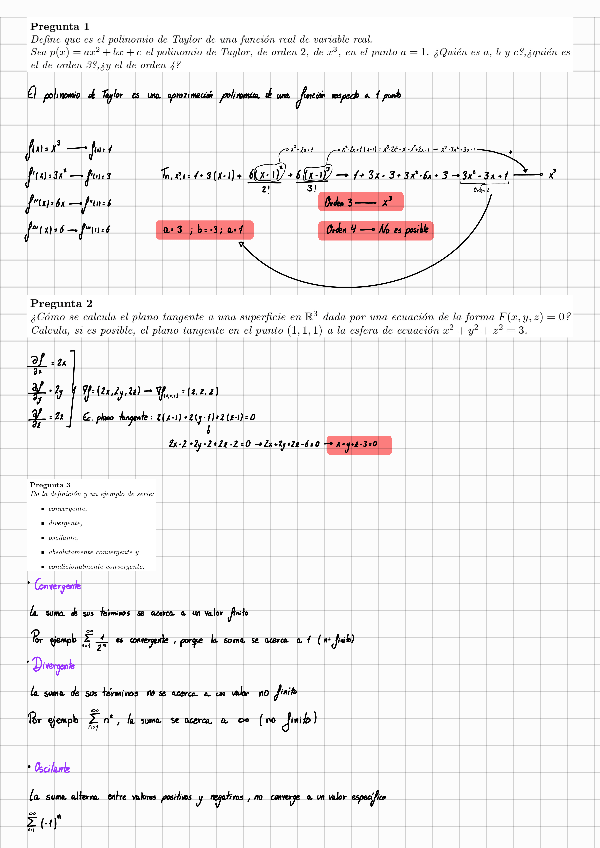 Pregunta 1
Define que es el polinomio de Taylor de una función real de variable real.
Sea p(x) = ax² + bx + c el polinomio de Taylor, de orden 2, de x³, en el punto a = 1. ¿Quién es a, b y c?,¿quién es
el de orden 3?,¿y el de orden 4?
El polinomio de Taylor es una aproximación polinómica de una función respecto a 1 punto
f(x) = x³ → f(1) = 1
f'(x) = 3x² → f'(1) = 3
f''(x) = 6x → f''(1) = 6
f'''(x) = 6 → f'''(1) = 6
1 + 3(x-1) + 6(x-1)²/2! + 6(x-1)³/3! → 1 + 3x - 3 + 3x² - 6x + 3 → 3x² - 3x + 1 → x³
Orden 2
Orden 3 → x³
a = 3 ; b = -3 ; a = 1
Orden 4 → No es posible
Pregunta 2
¿Cómo se calcula el plano tangente a una superficie en ℝ³ dada por una ecuación de la forma F(x, y, z) = 0?
Calcula, si es posible, el plano tangente en el punto (1, 1, 1) a la esfera de ecuación x² + y² + z² = 3.
∂f/∂x = 2x
∂f/∂y = 2y
∇f = (2x, 2y, 2z) → ∇f(1,1,1) = (2, 2, 2)
∂f/∂z = 2z
Ec. plano tangente: 2(x-1) + 2(y-1) + 2(z-1) = 0
2x - 2 + 2y - 2 + 2z - 2 = 0 → 2x + 2y + 2z - 6 = 0 → x + y + z - 3 = 0
Pregunta 3
Da la definición y un ejemplo de serie:
• convergente,
• divergente,
• oscilante,
• absolutamente convergente y
• condicionalmente convergente.
• Convergente
La suma de sus términos se acerca a un valor finito
Por ejemplo ∑ 1/2ⁿ es convergente, porque la suma se acerca a 1 (nº finito)
• Divergente
La suma de sus términos no se acerca a un valor no finito
Por ejemplo ∑ n², la suma se acerca a ∞ (no finito)
• Oscilante
La suma alterna entre valores positivos y negativos, no converge a un valor específico
∑ (-1)ⁿ